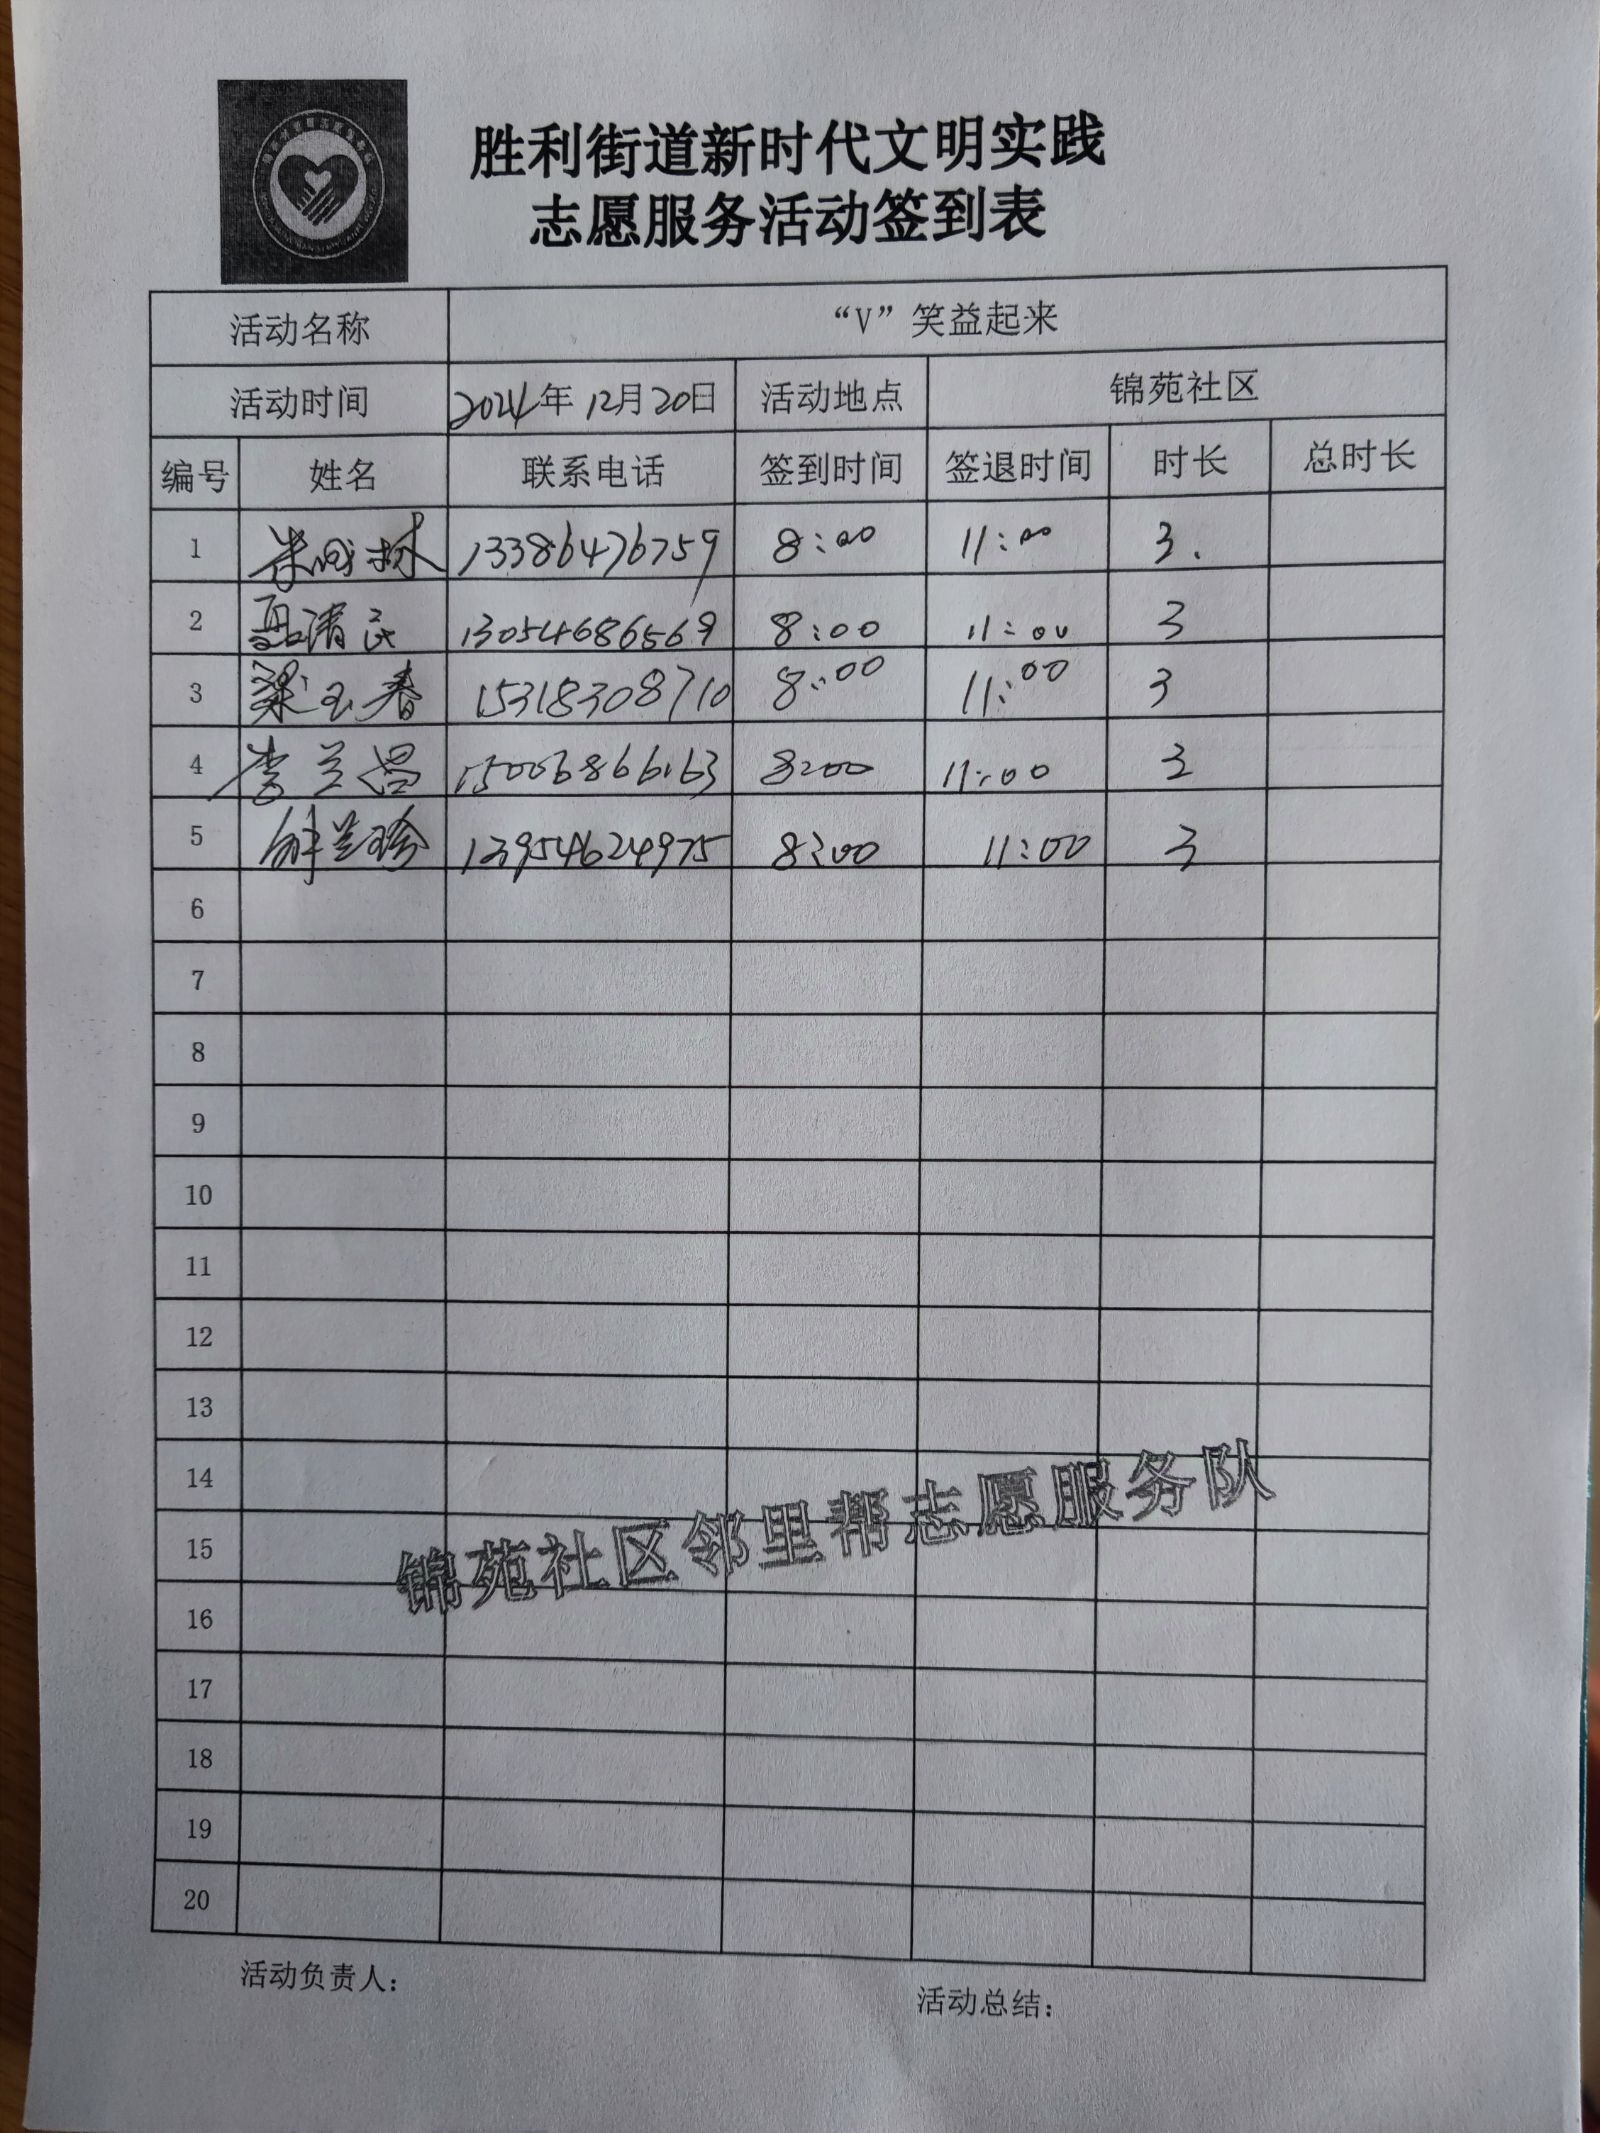 胜利街道新时代文明实践
志愿服务活动签到表
活动名称 “V”笑益起来
活动时间 2024年12月20日 活动地点 锦苑社区
编号 姓名 联系电话 签到时间 签退时间 时长 总时长
1 13386476759 8:00 11:00 3.
2 聂清民 13054686569 8:00 11:00 3
3 梁玉春 15318308710 8:00 11:00 3
4 李兰昌 15006866163 8:00 11:00 3
5 薛兰珍 13954624975 8:00 11:00 3
6
7
8
9
10
11
12
13
14
15
16
17
18
19
20
锦苑社区邻里帮志愿服务队
活动负责人:
活动总结: